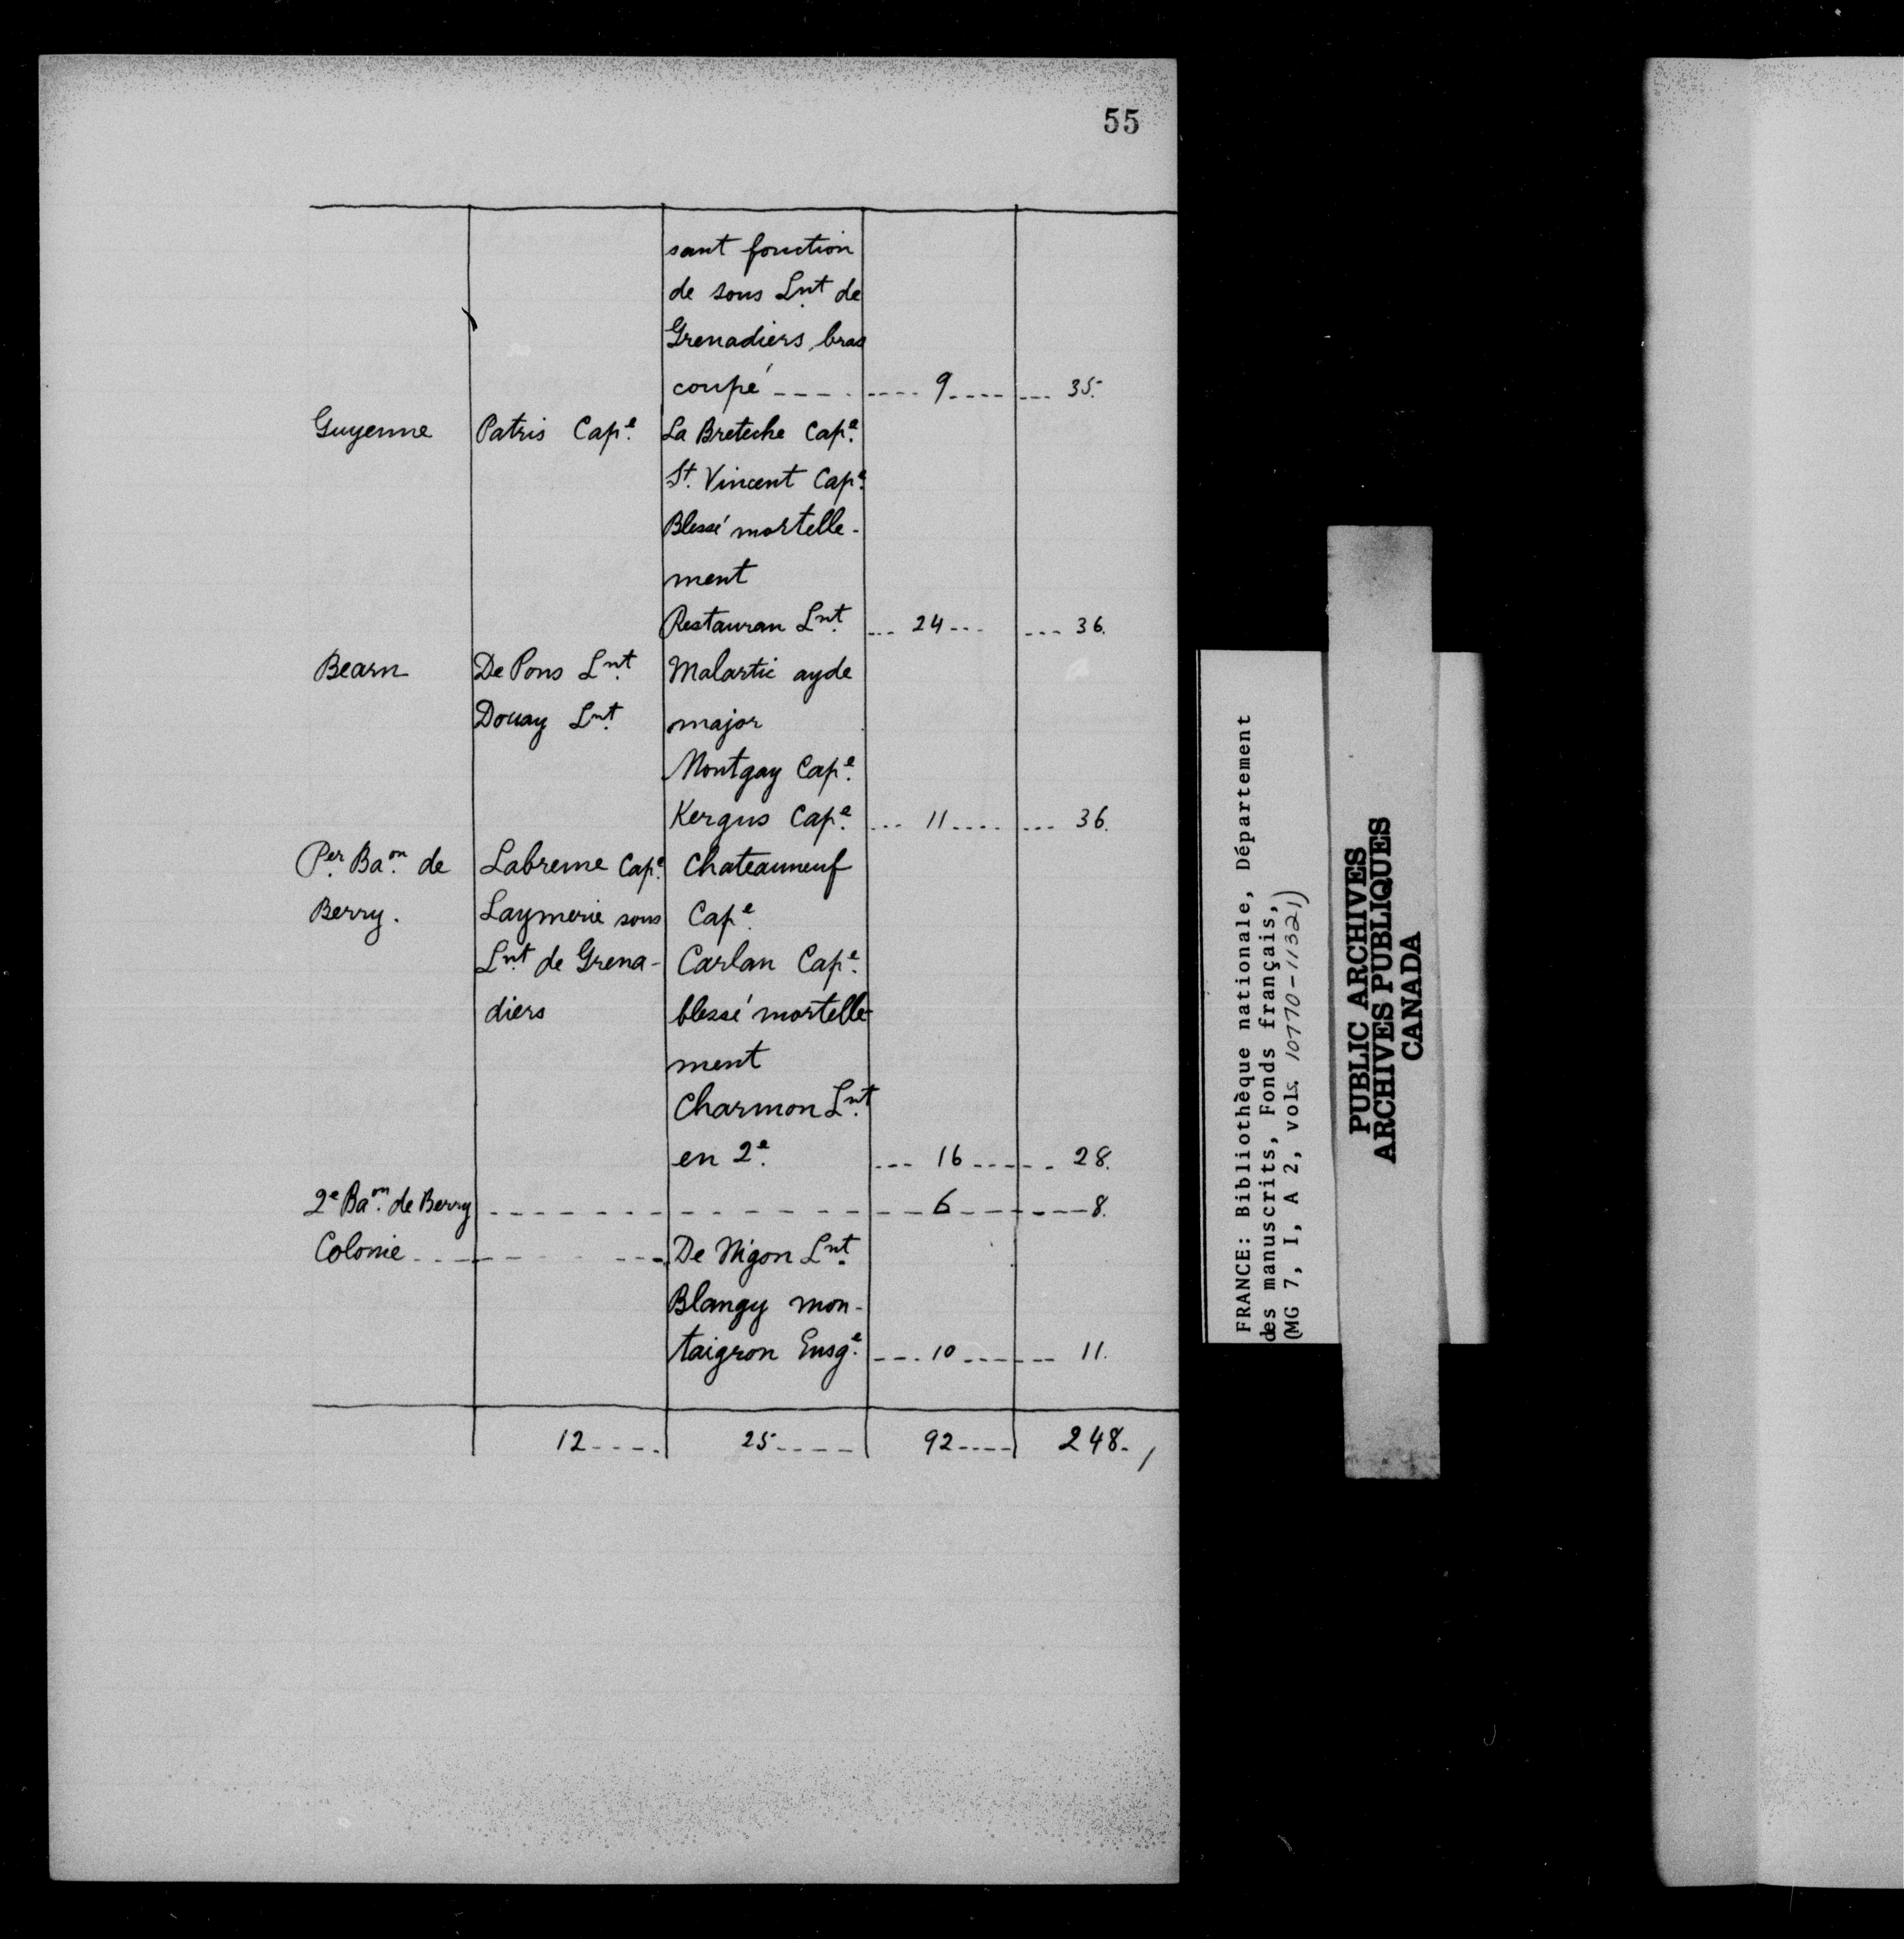 55
sant fonction
de sous Lnt de
Grenadiers, bras
coupé ---- ---- 9 ---- --- 35.
Guyenne Patris Cap.e La Breteche Cap.e
St. Vincent Cap.e
Blessé mortelle-
ment
Restauran Lnt --- 24 --- --- 36.
Bearn De Pons Lnt Malartic ayde
Douay Lnt major
Montgay Cap.e
Kergus Cap.e --- 11 ---- --- 36.
Per. Baon. de Labreme Cap.e Chateauneuf
Berry. Laymerie sous Cap.e
Lnt de Grena- Carlan Cap.e
diers blessé mortelle-
ment
Charmon Lnt
en 2e. --- 16 ---- -- 28.
2e Baon. de Berry - - - - - - - - - - 6 ------ 8.
Colonie ---- - - - --- De Nigon Lnt
Blangy mon-
taigron Ensg.e --- 10 ---- --- 11.
12 ---- 25 ---- 92 ---- 248. /
FRANCE: Bibliothèque nationale, Département
des manuscrits, Fonds français,
(MG 7, I, A 2, vols. 10770-11321)
PUBLIC ARCHIVES
ARCHIVES PUBLIQUES
CANADA